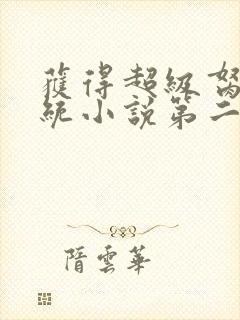 獲得超級
統小說第二
隋雲華